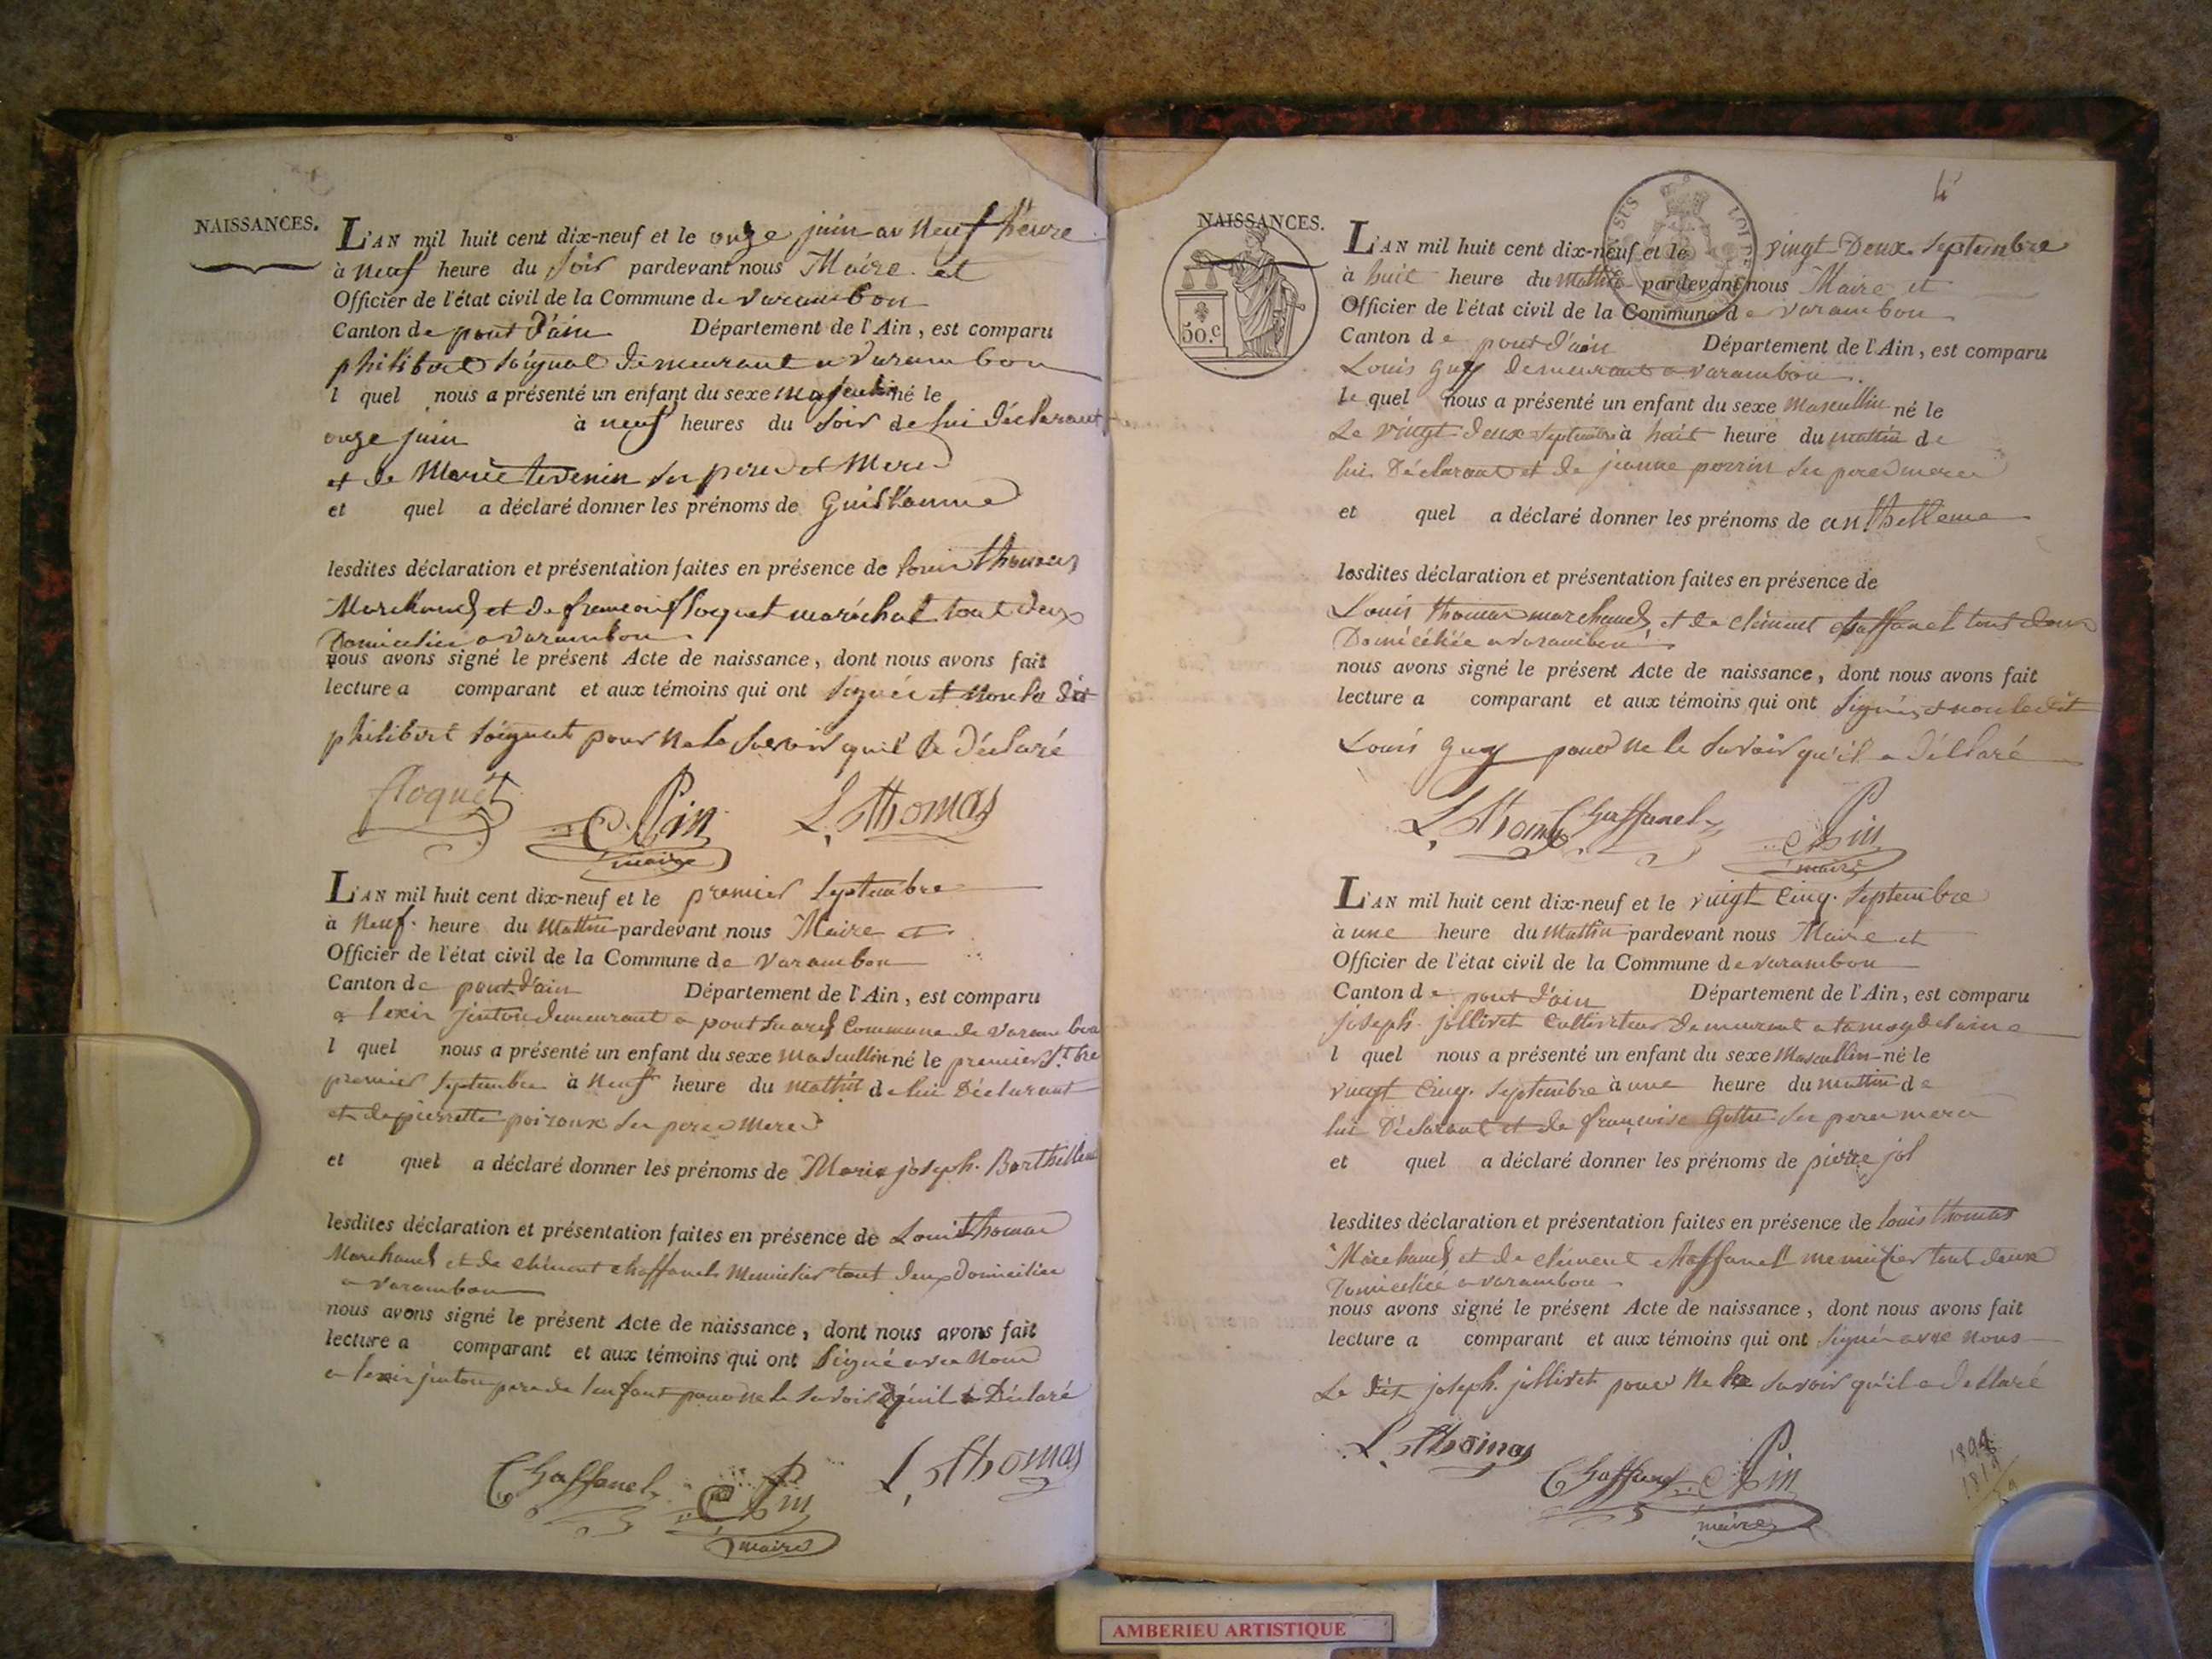 NAISSANCES.
L'AN mil huit cent dix-neuf et le onze juin au neuf heure
à neuf heure du soir pardevant nous Maire et
Officier de l'état civil de la Commune de varambon
Canton de pont d'ain Département de l'Ain, est comparu
philibert soignat demeurant a varambon
l quel nous a présenté un enfant du sexe masculin né le
onze juin à neuf heures du soir de lui déclarant
et de Marie tevenin ses pere et Mere
et quel a déclaré donner les prénoms de Guillaume
lesdites déclaration et présentation faites en présence de louis thomas
Marchand et de francois floquet maréchal tout deux
Domicilié a varambon
nous avons signé le présent Acte de naissance, dont nous avons fait
lecture a comparant et aux témoins qui ont signée et non le dit
philibert soignat pour ne le savoir qu'il a déclaré
floquet Pin L. Thomas
maire
L'AN mil huit cent dix-neuf et le premier septembre
à neuf heure du mattin pardevant nous Maire et
Officier de l'état civil de la Commune de varambon
Canton de pont d'ain Département de l'Ain, est comparu
alexis jinton demeurant a pont Commune de varambon
l quel nous a présenté un enfant du sexe mascullin né le premier S.bre
premier septembre à neuf heure du mattin de lui Déclarant
et de pierrette poiroux ses pere Mere
et quel a déclaré donner les prénoms de Marie joseph. Barthellem
lesdites déclaration et présentation faites en présence de Louis thomas
Marchand et de clément chaffanel Menuisier tout deux Domicilié
a varambon
nous avons signé le présent Acte de naissance, dont nous avons fait
lecture a comparant et aux témoins qui ont signé avec Nous
alexis jinton pere de lenfant pour ne le savoir qu'il a Déclaré
Chaffanel Pin L. Thomas
maire
4
NAISSANCES.
50.c
L'AN mil huit cent dix-neuf et le vingt Deux septembre
à huit heure du mattin pardevant nous Maire et
Officier de l'état civil de la Commune de varambon
Canton de pont d'ain Département de l'Ain, est comparu
Louis Guy demeurant a varambon
le quel nous a présenté un enfant du sexe Mascullin né le
Le vingt deux septembre à huit heure du mattin de
lui Déclarant et de jeanne perrin ses pere mere
et quel a déclaré donner les prénoms de anthelleme
lesdites déclaration et présentation faites en présence de
Louis thomas marchand et de clément chaffanel tout deux
Domicéliée a varambon
nous avons signé le présent Acte de naissance, dont nous avons fait
lecture a comparant et aux témoins qui ont signés et non le dit
Louis Guy pour ne le savoir qu'il a déclaré
L. Thomas Chaffanel Pin
maire
L'AN mil huit cent dix-neuf et le vingt cinq. septembre
à une heure du mattin pardevant nous Maire et
Officier de l'état civil de la Commune de varambon
Canton de pont d'ain Département de l'Ain, est comparu
joseph. jollivet cultivateur demeurant a
l quel nous a présenté un enfant du sexe Mascullin né le
vingt cinq. septembre à une heure du mattin de
lui Déclarant et de françoise ses pere mere
et quel a déclaré donner les prénoms de pierre jol
lesdites déclaration et présentation faites en présence de louis thomas
Marchand et de clément chaffanel menuisier tout deux
Domicelié a varambon
nous avons signé le présent Acte de naissance, dont nous avons fait
lecture a comparant et aux témoins qui ont signé avec nous
Le dit joseph. jollivet pour ne le savoir qu'il a declaré
L. Thomas
Chaffanel Pin
maire
AMBERIEU ARTISTIQUE